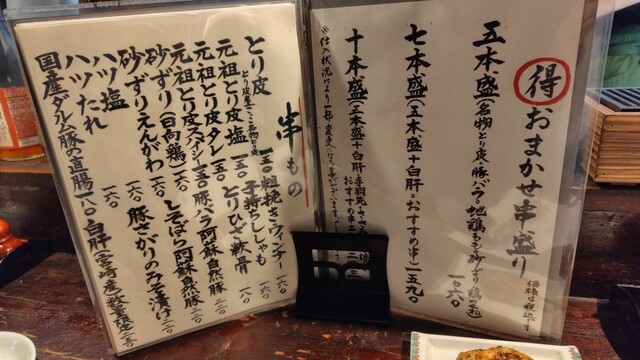 得 おまかせ串盛り
価格は税込です
五本盛(名物とり皮・豚バラ・地鶏もも・砂ずり・鶏つくね)
一〇六〇
七本盛(五本盛+白肝・おすすめ串)一五九〇
十本盛(五本盛+白肝・手羽先・ささみ
おすすめ串
※仕入状況により一部変更になる事がございます
串もの
とり皮
とり皮屋ここの名物とり皮
一五〇
元祖とり皮 塩 一五〇
元祖とり皮 タレ 一五〇
元祖とり皮スパイシー 一五〇
砂ずり(日向鶏) 一六〇
砂ずりえんがわ 一六〇
ハツ塩
ハツたれ 一六〇
国産ダルム豚の直腸 一八〇
粗挽きウィンナー 一六〇
子持ちししゃも 一六〇
とりひざ軟骨 一八〇
豚バラ 阿蘇自然豚 二〇〇
しそばら 阿蘇自然豚 二〇〇
豚さがりのみそ漬け 二〇〇
白肝(宮崎産)数量限定 二五〇